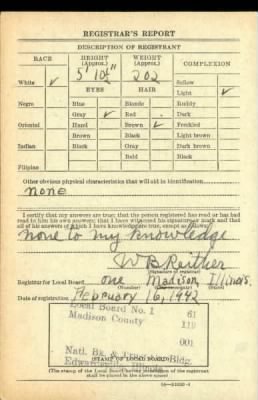 REGISTRAR'S REPORT
DESCRIPTION OF REGISTRANT
RACE HEIGHT (Approx.) WEIGHT (Approx.) COMPLEXION
5' 10½" 202 Sallow
White ✓ EYES HAIR Light ✓
Negro Blue Blonde Ruddy
Gray ✓ Red Dark
Oriental Hazel Brown ✓ Freckled
Brown Black Light brown
Indian Black Gray Dark brown
Bald Black
Filipino
Other obvious physical characteristics that will aid in identification
none
I certify that my answers are true; that the person registered has read or has had
read to him his own answers; that I have witnessed his signature or mark and that
all of his answers of which I have knowledge are true, except as follows:
none to my knowledge
W B Reither
(Signature of registrar)
Registrar for Local Board one Madison, Illinois.
(Number)
Date of registration February 16, 1942
Local Board No. 1 61
Madison County 119
001
Natl. Bk. & Bldg.
Edwardsville, Illinois
(STAMP OF LOCAL BOARD)
(The stamp of the Local Board having jurisdiction of the registrant
shall be placed in the above space)